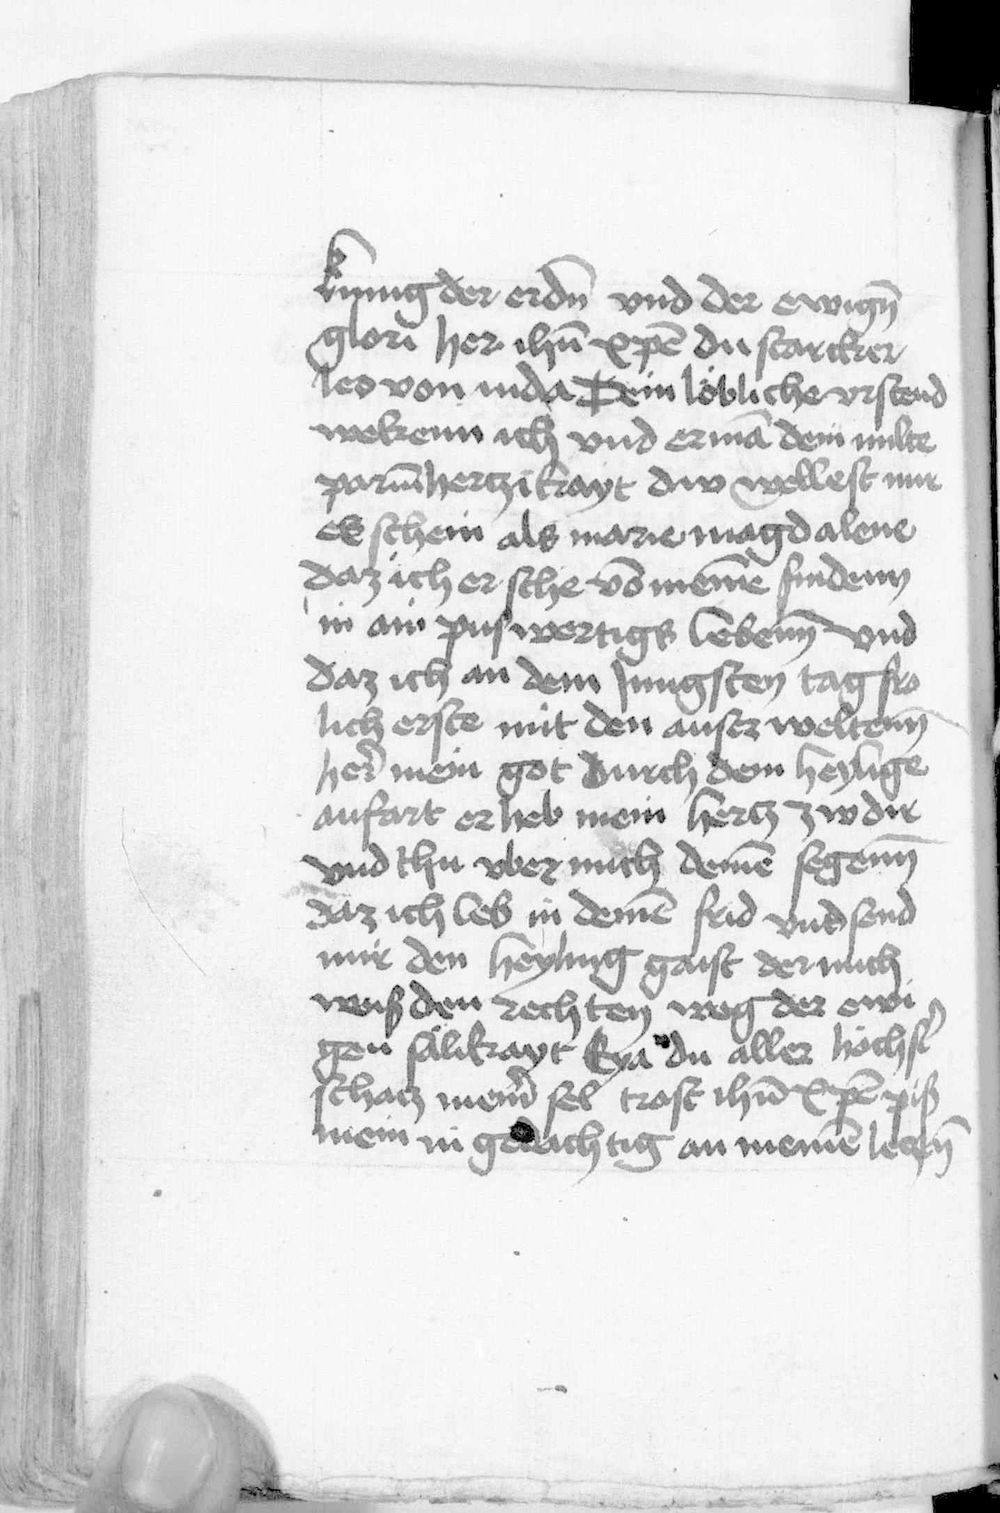 kunig der erdn̄ vnd der ewign̄
glori her ihū xpē du starcker
leo von iuda Dein löbliche vrstend
wekenn ich vnd ermā dein milte
parmhertzikayt dw wellest mir
erschein als marie magdalene
daz ich er sthe vō meinē sundenn
in ain puswertigs lebenn̄ vnd
daz ich an dem Jungsten tag fro
lich erste mit den auserweltenn̄
her̄ mein got durch dein heylige
aufart erheb mein hertz zw dir
vnd thu vber mich deinē segenn̄
daz ich leb in deinē frid vnd send
mir den heyling gaist der mich
weis den rechten weg der ewi
gen sälikayt Eya du aller höchst̾
schatz mein̾ sel trost ihū xpē pis
mein in gedachtig an meinē leczn̄